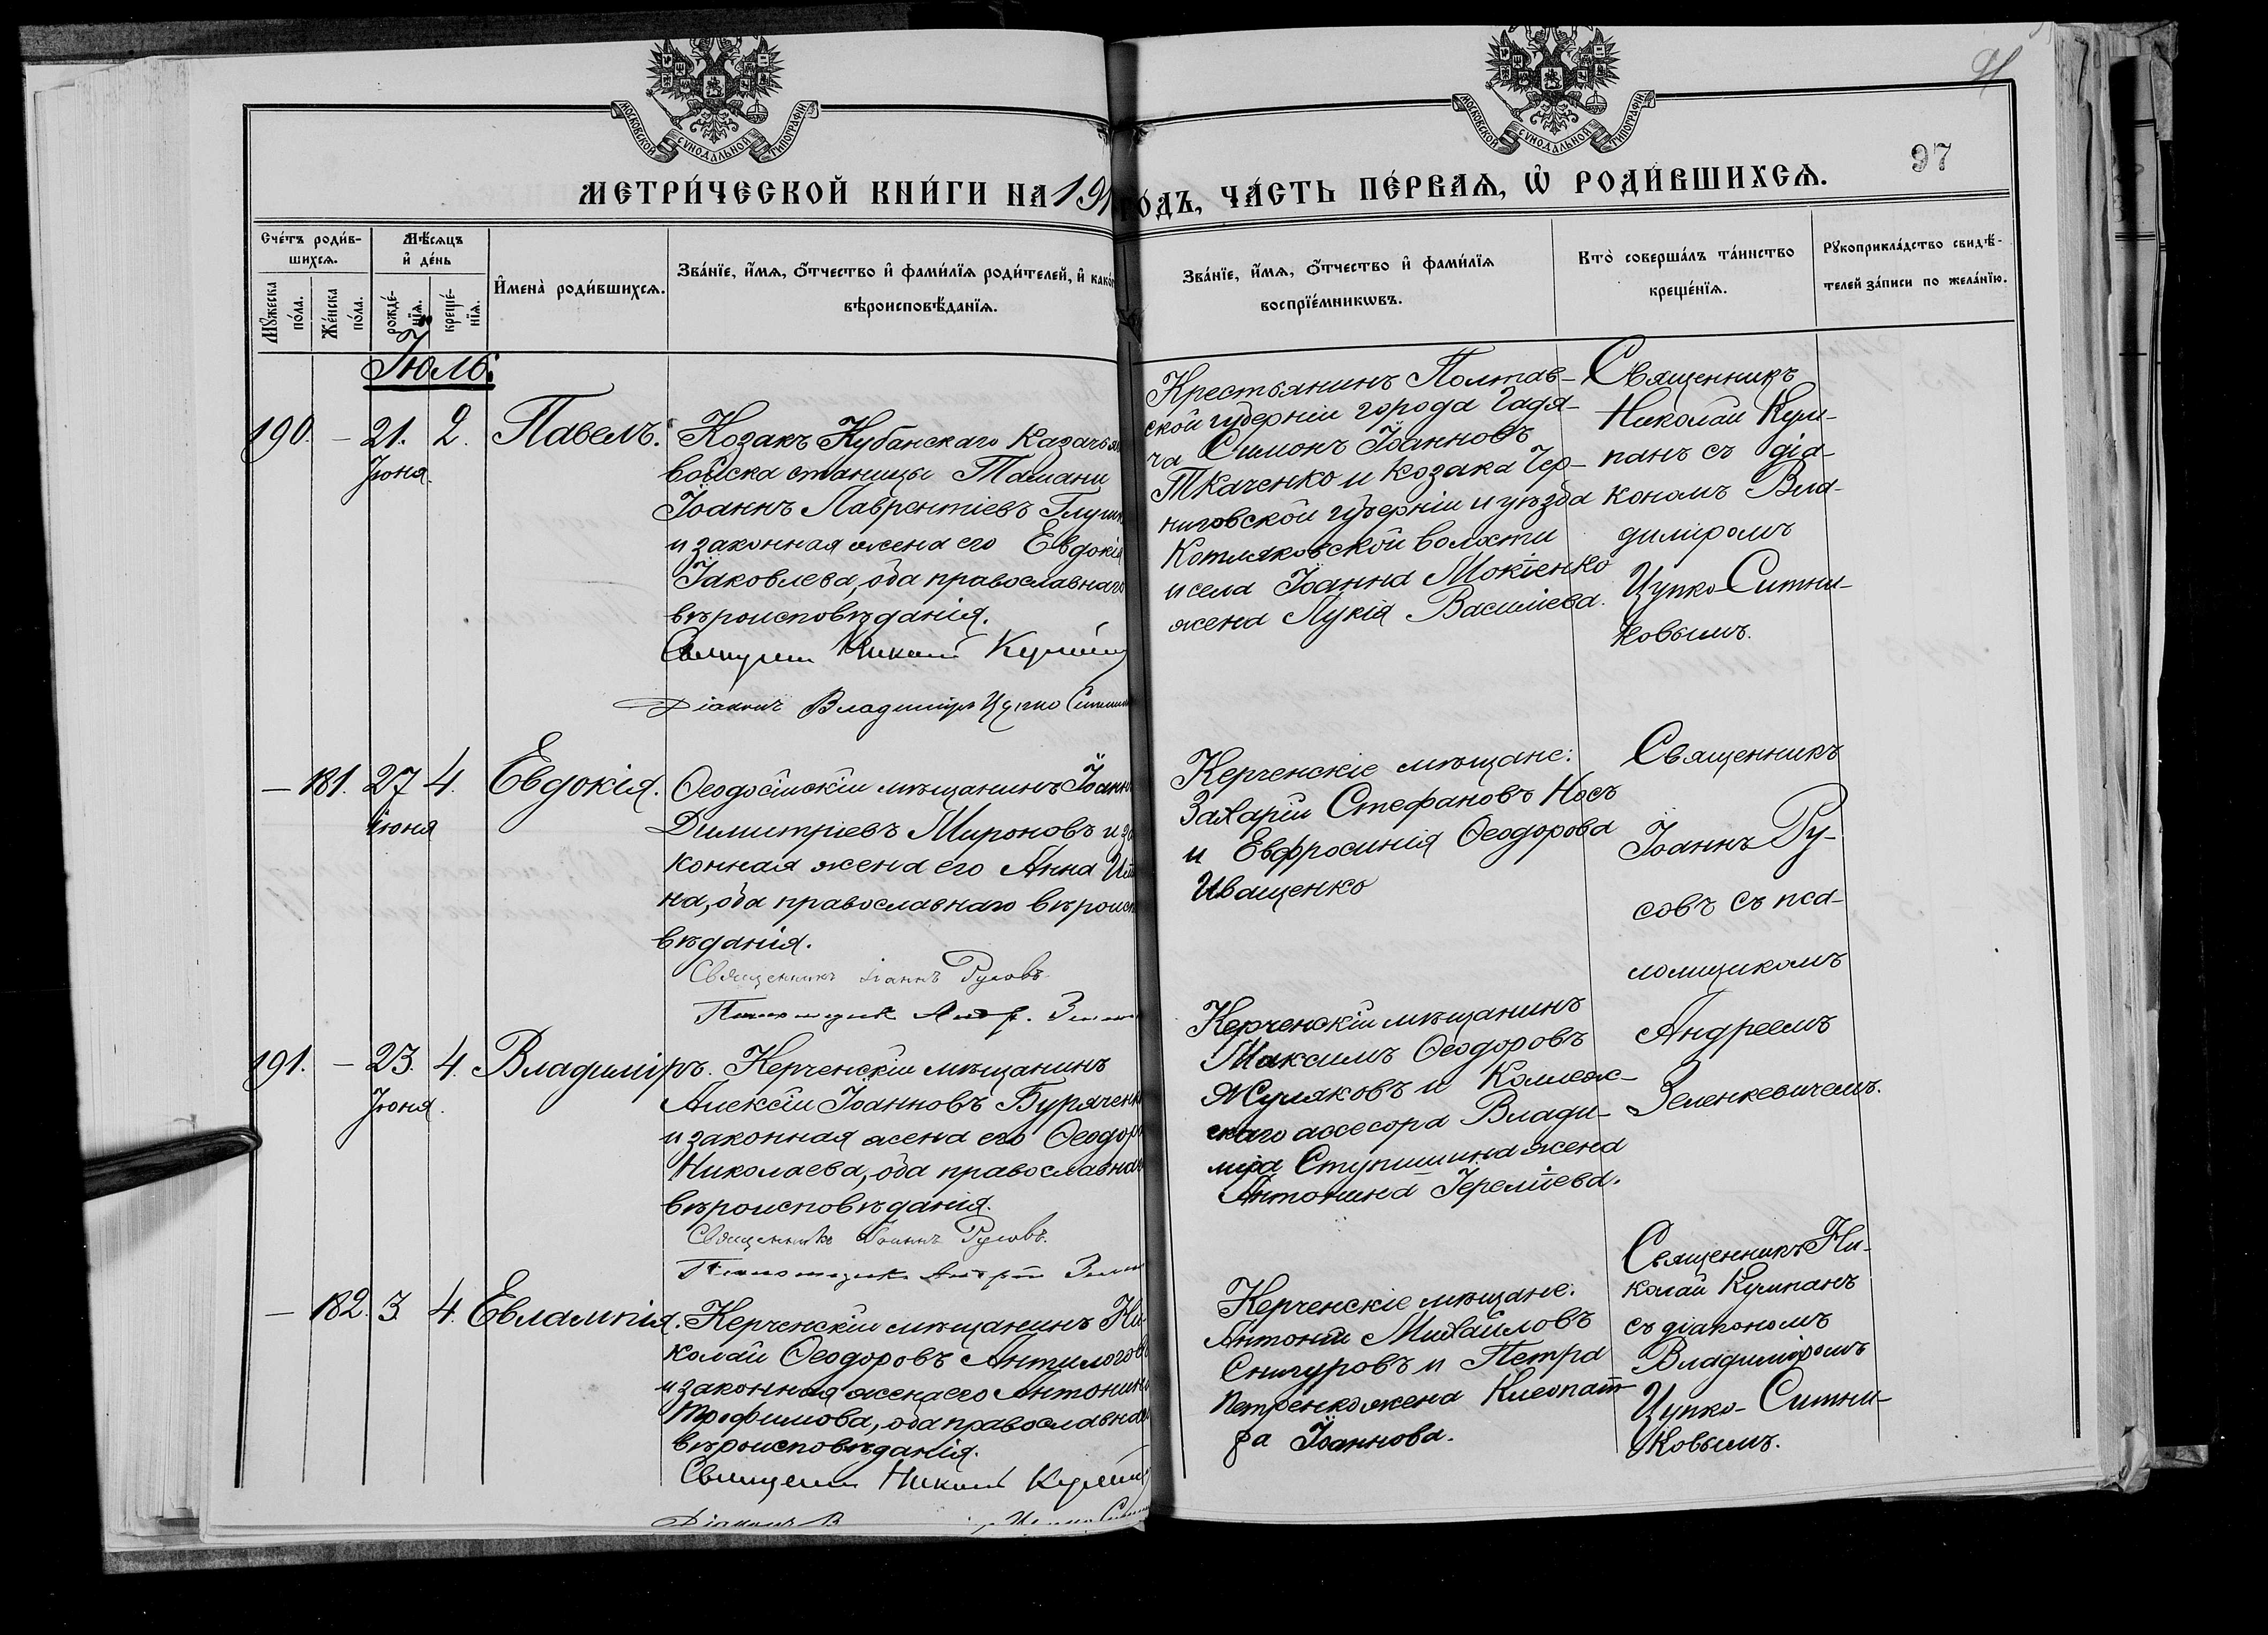 МОСКОВСКОЙ СѴНОДАЛЬНОЙ ТИПОГРАФІИ
МОСКОВСКОЙ СѴНОДАЛЬНОЙ ТИПОГРАФІИ
97
МЕТРИ́ЧЕСКОЙ КНИ́ГИ НА 191
ГО́ДЪ, ЧА́СТЬ ПЕ́РВАѦ, Ѡ҆ РОДИ́ВШИХСѦ.
Сче́тъ роди́в-
шихсѧ.
Мѣ́сѧцъ
и҆ де́нь
Мꙋ́жеска по́ла.
Же́нска по́ла.
рожде́-
нїѧ.
креще́-
нїѧ.
И҆мена̀ роди́вшихсѧ.
Зва́нїе, и҆́мѧ, ѻ҆́тчество и҆ фами́лїѧ роди́телей, и҆ како́г
вѣроисповѣ́данїѧ.
Зва́нїе, и҆́мѧ, ѻ҆́тчество и҆ фами́лїѧ
воспрїе́мникѡвъ.
Кто̀ соверша́лъ та́инство
креще́нїѧ.
Рꙋкоприкла́дство свидѣ́-
телей за́писи по жела́нїю.
Іюль.
190. — 21. 2. Павелъ.
Іюня.
Козакъ Кубанскаго Казачья
войска станицы Тамани
Іоаннъ Лаврентіевъ Глущ
и законная жена его Евдокія
Іаковлева, оба православнаго
вѣроисповѣданія.
Священникъ Николай Кулпан
Діаконъ Владиміръ Цупко Ситни
Крестьянинъ Полтав-
ской губерніи города Гадя-
ча Симонъ Іоанновъ
Ткаченко и козака Чер-
ниговской губерніи и уѣзда
Котляковской волости
и села Іоанна Мокіенко
жена Лукія Василіева.
Священникъ
Николай Кул-
панъ съ діа-
кономъ Вла-
диміромъ
Цупко-Ситни-
ковымъ.
— 181. 27 4. Евдокія.
іюня
Ѳеодосійскій мѣщанинъ Іоанн
Димитріевъ Мироновъ и за
конная жена его Анна
на, оба православнаго вѣроисп
вѣданія.
Священникъ Іоаннъ Русовъ
Псаломщикъ Андр. Зелен
Керченскіе мѣщане:
Захарій Стефановъ Носъ
и Евфросинія Ѳеодорова
Иващенко
Священникъ
Іоаннъ Ру-
совъ съ пса-
ломщикомъ
Андреемъ
Зеленкевичемъ.
191. — 23. 4. Владиміръ.
Іюня.
Керченскій мѣщанинъ
Алексій Іоанновъ Буряченк
и законная жена его Ѳеодор
Николаева, оба православна
вѣроисповѣданія.
Священникъ Іоаннъ Русовъ.
Псаломщикъ Андрей Зелен
Керченскій мѣщанинъ
Максимъ Ѳеодоровъ
Жуляковъ и Коллеж-
скаго ассесора Влади-
міра Ступишина жена
Антонина Іереміева.
— 182. 3. 4. Евлампія.
Керченскій мѣщанинъ Ни-
колай Ѳеодоровъ Антилогов
и законная жена его Антонин
Трофимова, оба православна
вѣроисповѣданія.
Священникъ Николай Кулпан
Діаконъ В Цупко Ситни
Керченскіе мѣщане:
Антоній Михайловъ
Снигуровъ и Петра
Петренко жена Клеопат-
ра Іоаннова.
Священникъ Ни-
колай Кулпанъ
съ діакономъ
Владиміромъ
Цупко-Ситни-
ковымъ.